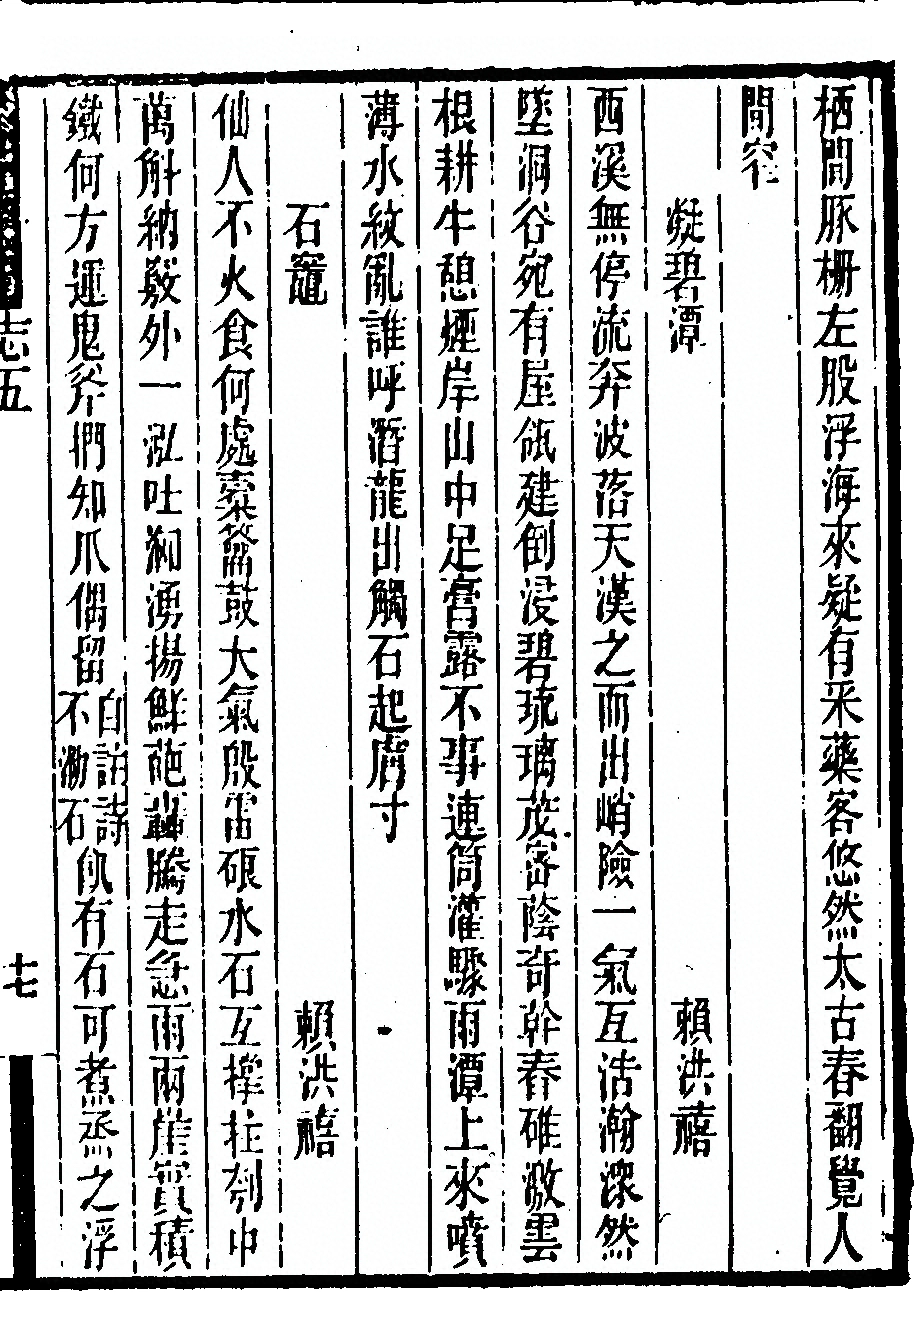 栖間豚柵左股浮海來疑有采藥客悠然太古春翻覺人
間窄
凝碧潭 賴洪禧
西溪無停流奔波落天漢之而出峭險一氣互浩瀚潀然
墜洞谷宛有屋瓴建倒浸碧琉璃茂密蔭奇幹舂碓激雲
根耕牛憩煙岸山中足膏露不事連筒灌驟雨潭上來噴
薄水紋亂誰呼潛龍出觸石起膚寸
石竈 賴洪禧
仙人不火食何處索鼛鼓大氣殷雷硠水石互撑拄刳中
萬斛納發外一泓吐洶湧揚鮮葩轟騰走急雨兩崖實積
鐵何方運鬼斧捫知爪偶留自註詩不泐石飢有石可煮烝之浮
志五
十七